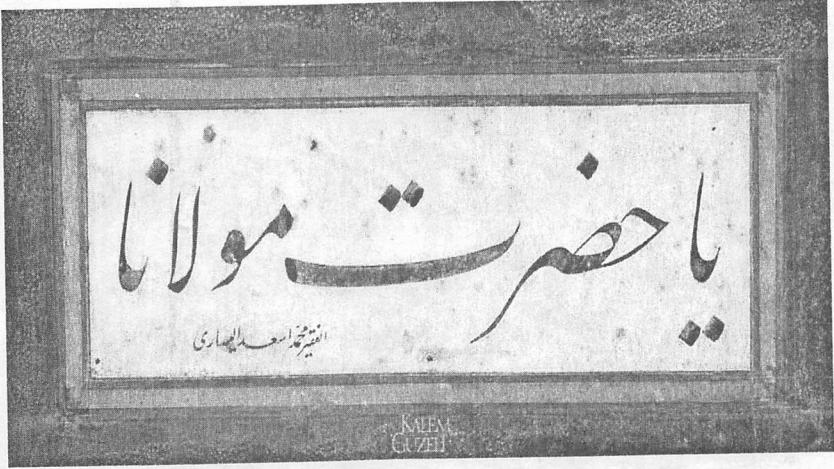 يا حضرت مولانا
الفقير محمد اسعد اليسارى
KALEM
GUZELİ